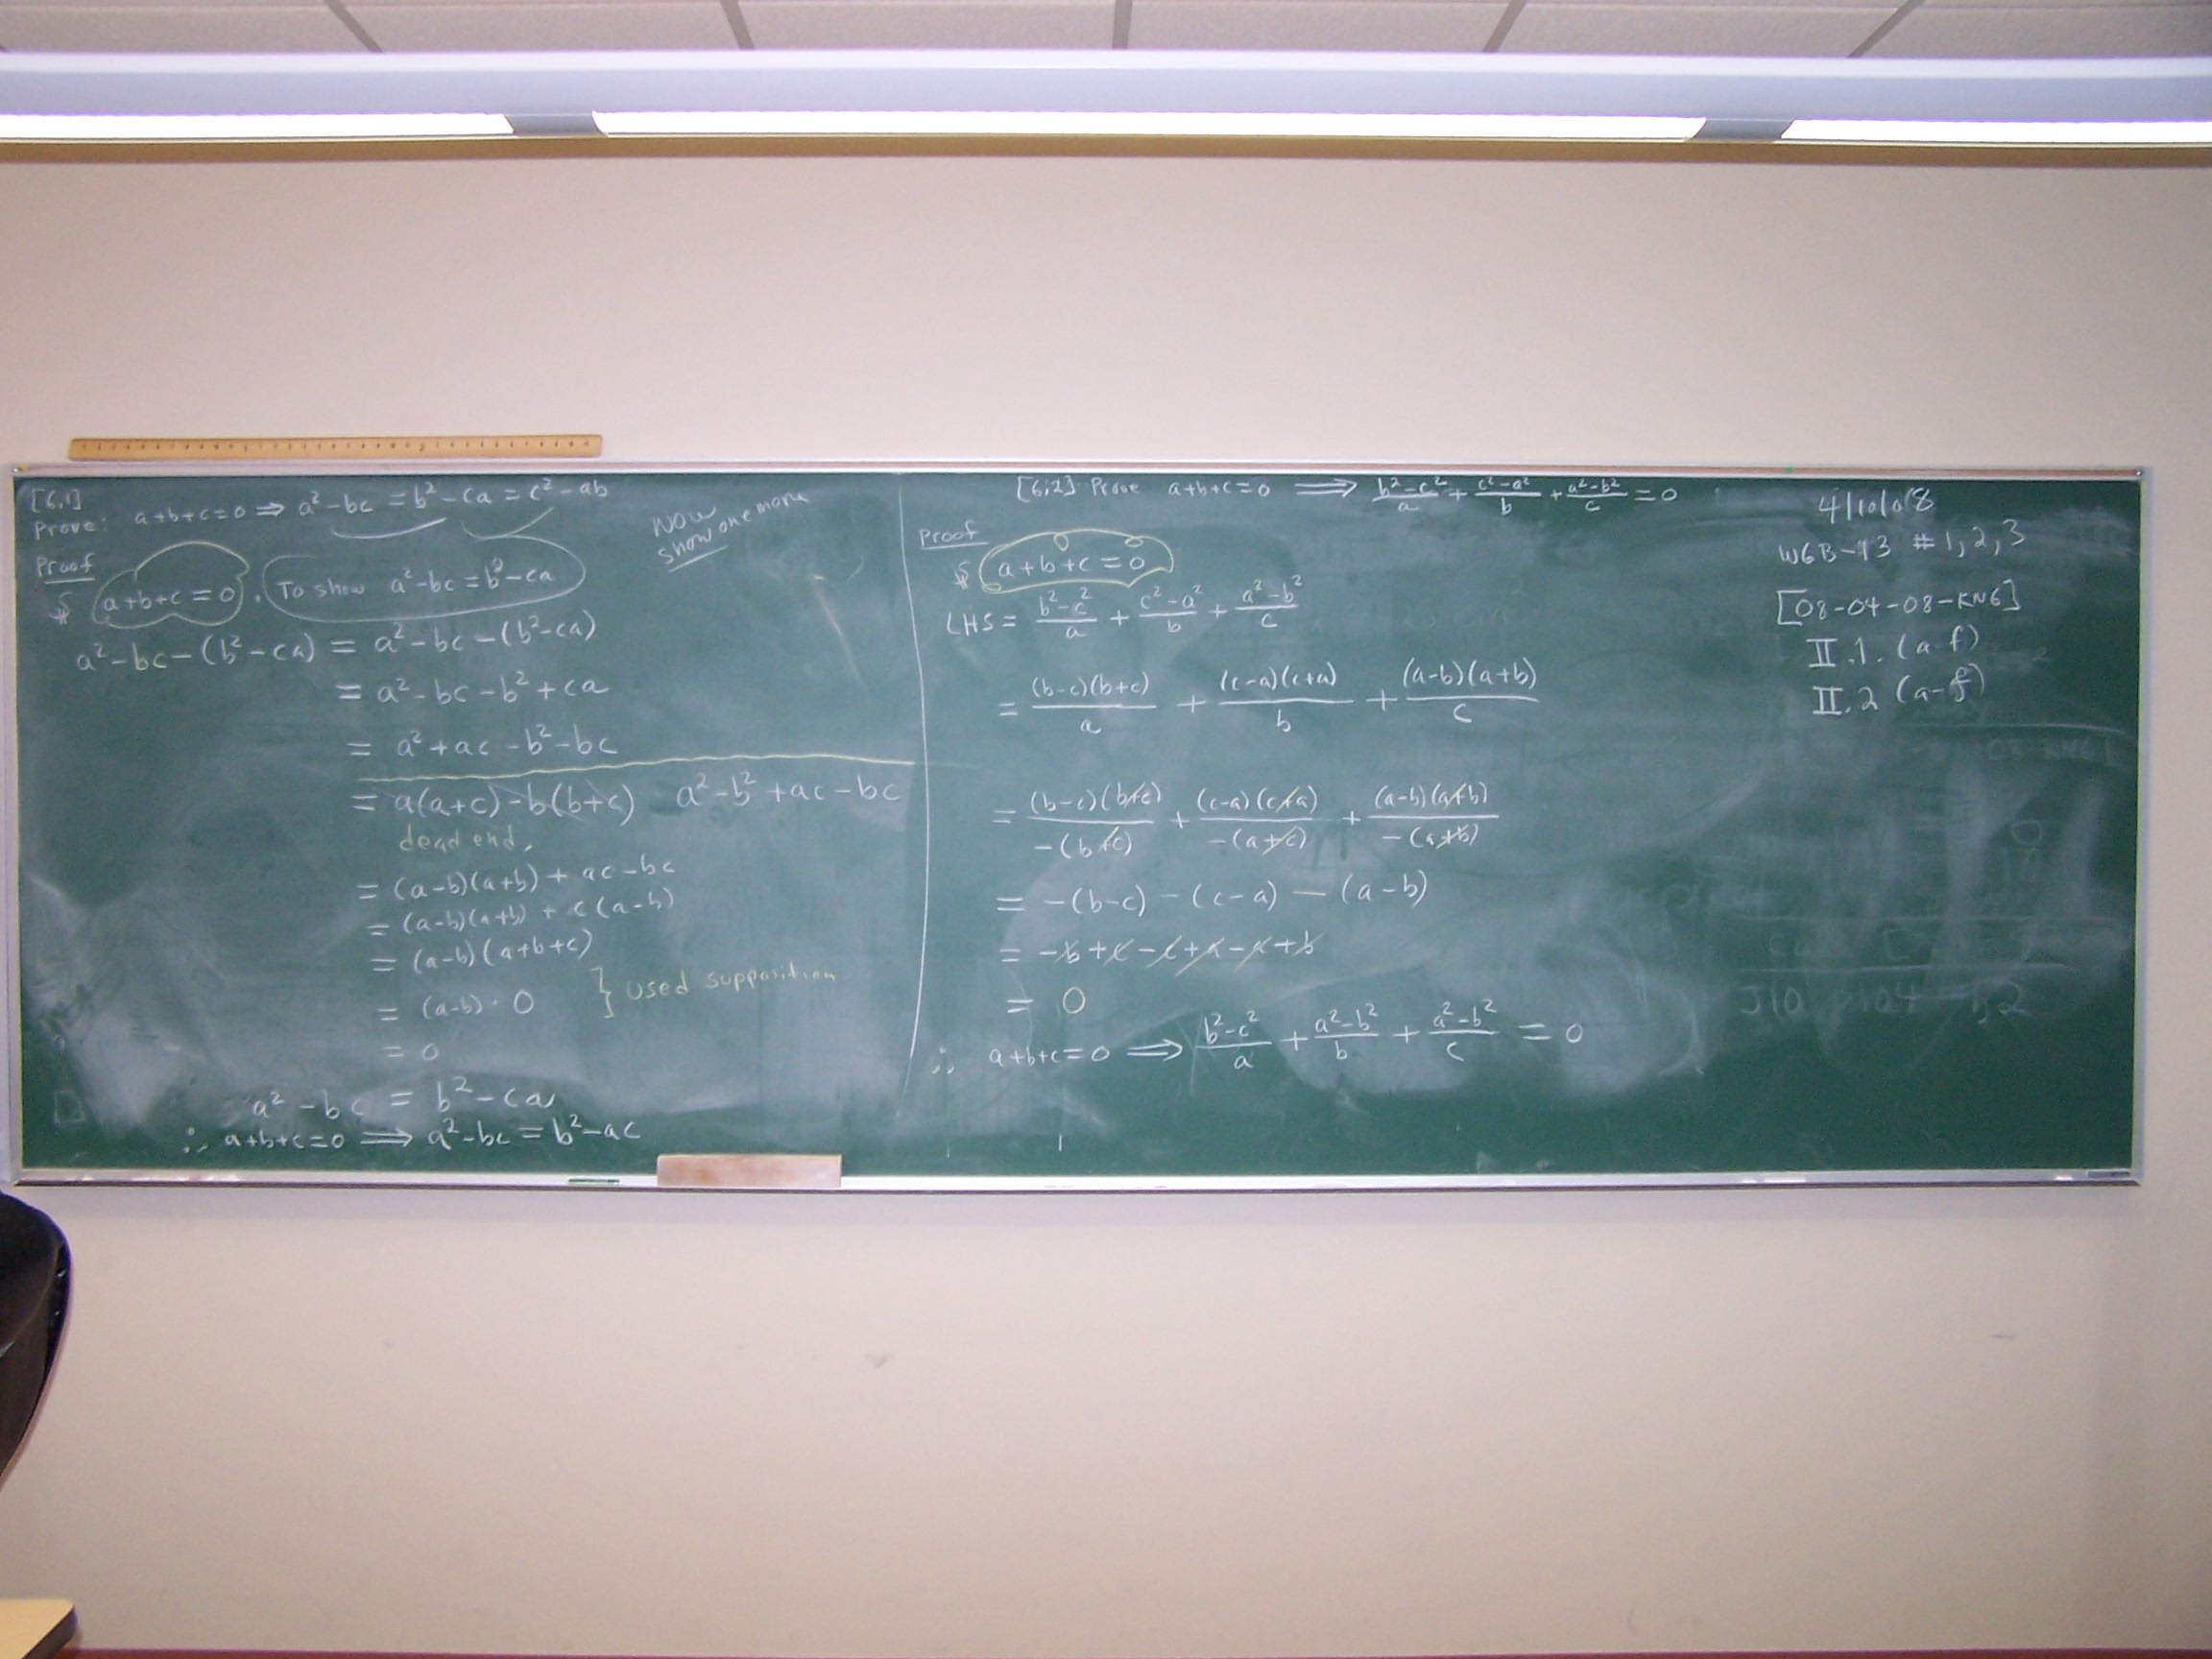 [6,1]
Prove: a+b+c=0 ⇒ a²-bc = b²-ca = c²-ab
NOW
show one more
Proof
$ a+b+c=0. To show a²-bc=b²-ca
a²-bc-(b²-ca) = a²-bc-(b²-ca)
= a²-bc-b²+ca
= a²+ac-b²-bc
= a(a+c)-b(b+c) a²-b²+ac-bc
dead end.
= (a-b)(a+b)+ac-bc
= (a-b)(a+b)+c(a-b)
= (a-b)(a+b+c)
= (a-b)·0 } used supposition
= 0
a²-bc = b²-ca
∴ a+b+c=0 ⟹ a²-bc=b²-ac
[6,2] Prove a+b+c=0 ⟹ (b²-c²)/a + (c²-a²)/b + (a²-b²)/c = 0
Proof
$ a+b+c=0
LHS = (b²-c²)/a + (c²-a²)/b + (a²-b²)/c
= (b-c)(b+c)/a + (c-a)(c+a)/b + (a-b)(a+b)/c
= (b-c)(b+c)/-(b+c) + (c-a)(c+a)/-(a+c) + (a-b)(a+b)/-(a+b)
= -(b-c)-(c-a)-(a-b)
= -b+c-c+a-a+b
= 0
∴ a+b+c=0 ⟹ (b²-c²)/a + (a²-b²)/b + (a²-b²)/c = 0
4/10/08
W6B-13 #1,2,3
[08-04-08-KN6]
II.1. (a-f)
II.2 (a-f)
J10 p104